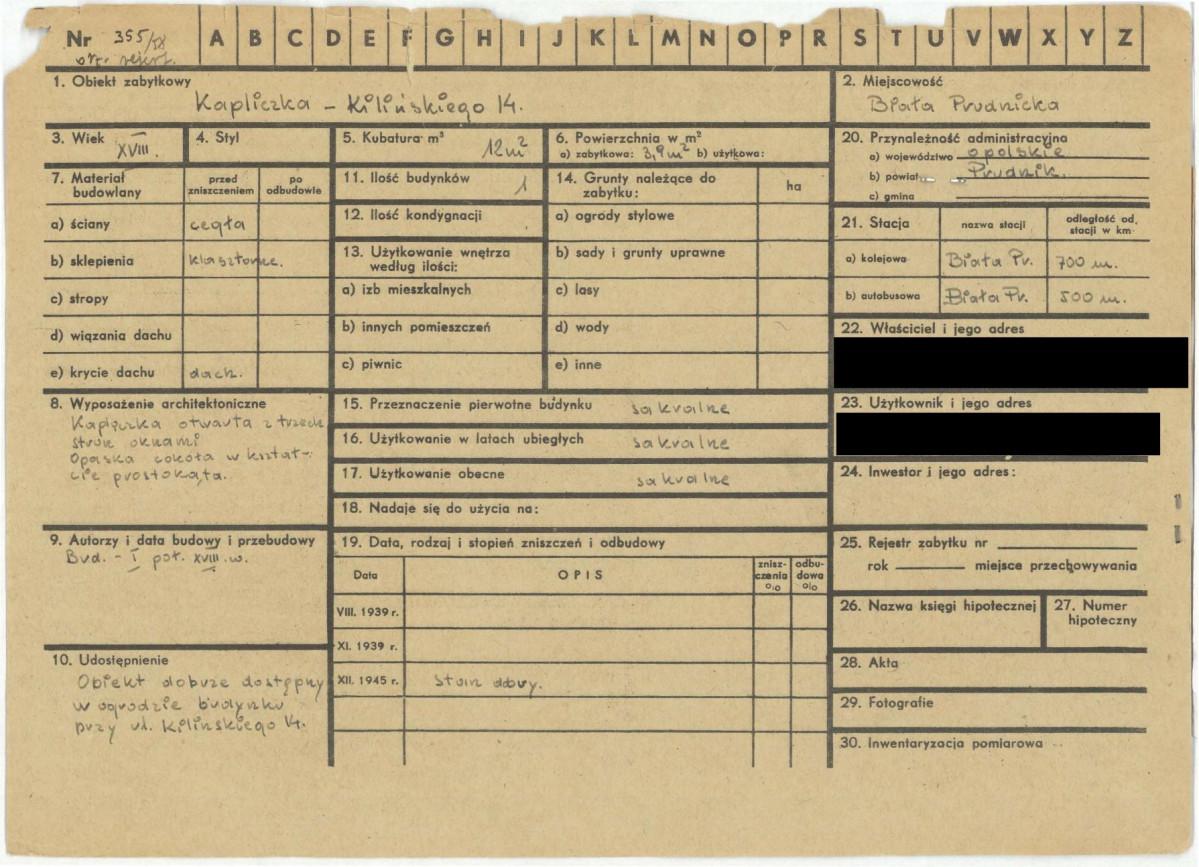 Nr 355/58 A B C D E F G H I J K L M N O P R S T U V W X Y Z
1. Obiekt zabytkowy
Kapliczka – Kilińskiego 14.
2. Miejscowość
Biała Prudnicka
3. Wiek I XVIII.
4. Styl
5. Kubatura m³ 12m²
6. Powierzchnia w m²
a) zabytkowa: 3,9m² b) użytkowa:
7. Materiał budowlany
przed zniszczeniem
po odbudowie
a) ściany cegła
b) sklepienia klasztorne.
c) stropy
d) wiązania dachu
e) krycie dachu dach.
8. Wyposażenie architektoniczne
Kapliczka otwarta z trzech
stron oknami
Opaska cokoła w kształ-
cie prostokąta.
9. Autorzy i data budowy i przebudowy
Bud. – I poł. XVIII.w.
10. Udostępnienie
Obiekt dobrze dostępny
w ogrodzie budynku
przy ul. Kilinskiego 14.
11. Ilość budynków 1
12. Ilość kondygnacji
13. Użytkowanie wnętrza
według ilości:
a) izb mieszkalnych
b) innych pomieszczeń
c) piwnic
14. Grunty należące do
zabytku:
ha
a) ogrody stylowe
b) sady i grunty uprawne
c) lasy
d) wody
e) inne
15. Przeznaczenie pierwotne budynku sakralne
16. Użytkowanie w latach ubiegłych sakralne
17. Użytkowanie obecne sakralne
18. Nadaje się do użycia na:
19. Data, rodzaj i stopień zniszczeń i odbudowy
Data
OPIS
znisz-
czenia
o/o
odbu-
dowa
o/o
VIII. 1939 r.
XI. 1939 r.
XII. 1945 r. stan dobry.
20. Przynależność administracyjna
a) województwo opolskie
b) powiat Prudnik.
c) gmina
21. Stacja
nazwa stacji
odległość od
stacji w km
a) kolejowa Biała Pr. 700 m.
b) autobusowa Biała Pr. 500 m.
22. Właściciel i jego adres
23. Użytkownik i jego adres
24. Inwestor i jego adres:
25. Rejestr zabytku nr
rok miejsce przechowywania
26. Nazwa księgi hipotecznej
27. Numer
hipoteczny
28. Akta
29. Fotografie
30. Inwentaryzacja pomiarowa